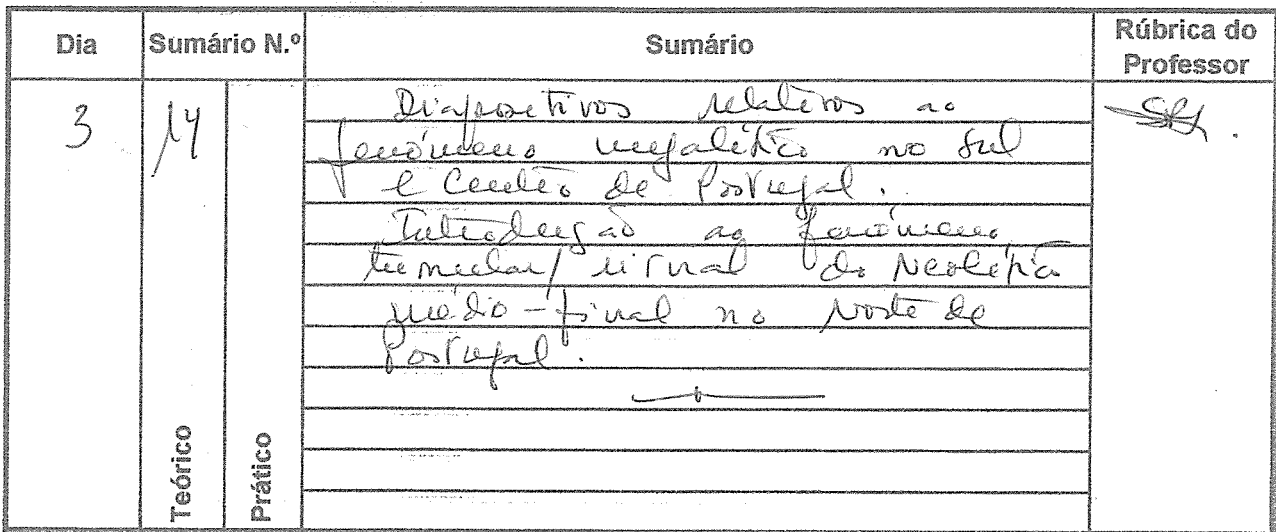 Dia Sumário N.º Sumário Rúbrica do Professor
3 14 Diapositivos relativos ao
fenómeno megalítico no Sul
e Centro de Portugal.
Introdução ao fenómeno
tumular/ritual do Neolítico
médio-final no Norte de
Portugal.
Teórico Prático